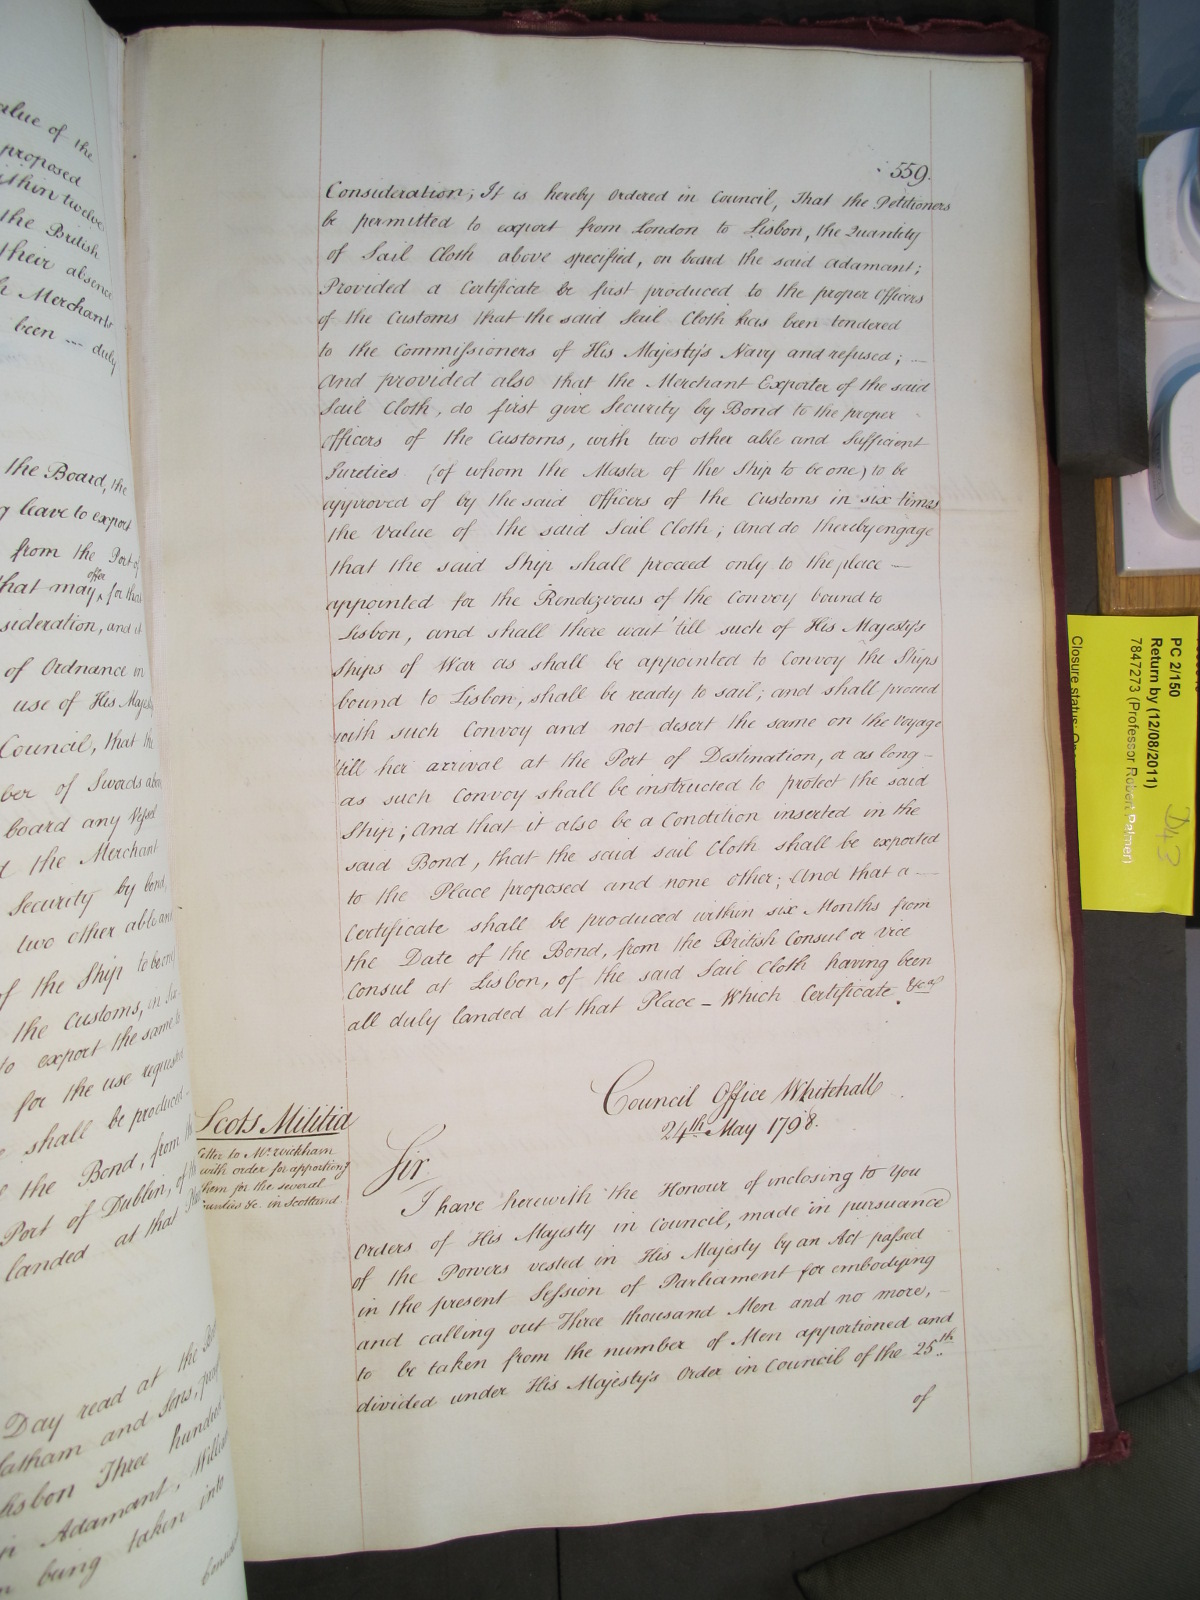 alue of the
proposed
ithin twelve
the British
their absence
Merchants
been --- duly
the Board, the
leave to export
from the Port of
offer
that may ^ for that
sideration, and it
of Ordnance in
use of His Majesty
Council, that the
ber of Swords abov
board any Vessel
the Merchant
Security by bond,
two other able and
of the Ship to be one
the Customs, in Six
to export the same to
for the use requested
shall be produced
the Bond, from the
Port of Dublin, of
landed at that
Day read at the
Latham and Sons,
Lisbon Three hundred
Adamant,
being taken into
559.
Consideration; It is hereby Ordered in Council, That the Petitioners
be permitted to export from London to Lisbon, the Quantity
of Sail Cloth above specified, on board the said Adamant;
Provided a Certificate be first produced to the proper Officers
of the Customs that the said Sail Cloth has been tendered
to the Commissioners of His Majesty's Navy and refused; —
And provided also that the Merchant Exporter of the said
Sail Cloth, do first give Security by Bond to the proper
Officers of the Customs, with two other able and Sufficient
Sureties (of whom the Master of the Ship to be one) to be
approved of by the said Officers of the Customs in six times
the Value of the said Sail Cloth; And do thereby engage
that the said Ship shall proceed only to the place —
appointed for the Rendezvous of the Convoy bound to
Lisbon, and shall there wait 'till such of His Majesty's
Ships of War as shall be appointed to Convoy the Ships
bound to Lisbon, shall be ready to sail; and shall proceed
with such Convoy and not desert the same on the Voyage
'till her arrival at the Port of Destination, or as long —
as such Convoy shall be instructed to protect the said
Ship; And that it also be a Condition inserted in the
said Bond, that the said sail Cloth shall be exported
to the Place proposed and none other; And that a —
Certificate shall be produced within six Months from
the Date of the Bond, from the British Consul or Vice
Consul at Lisbon, of the said Sail Cloth having been
all duly landed at that Place – Which Certificate &ca
Council Office Whitehall
24th May 1798.
Scots Militia
letter to Mr. Wickham
with order for apportiong
them for the several
counties &c. in Scotland
Sir
I have herewith the Honour of inclosing to You
Orders of His Majesty in Council, made in pursuance
of the Powers vested in His Majesty by an Act passed
in the present Session of Parliament for embodying
and calling out Three thousand Men and no more,
to be taken from the number of Men apportioned and
divided under His Majesty's Order in Council of the 25th
of
PC 2/150
Return by (12/08/2011)
7847273 (Professor Robert Palmer)
Closure status: Op
D43